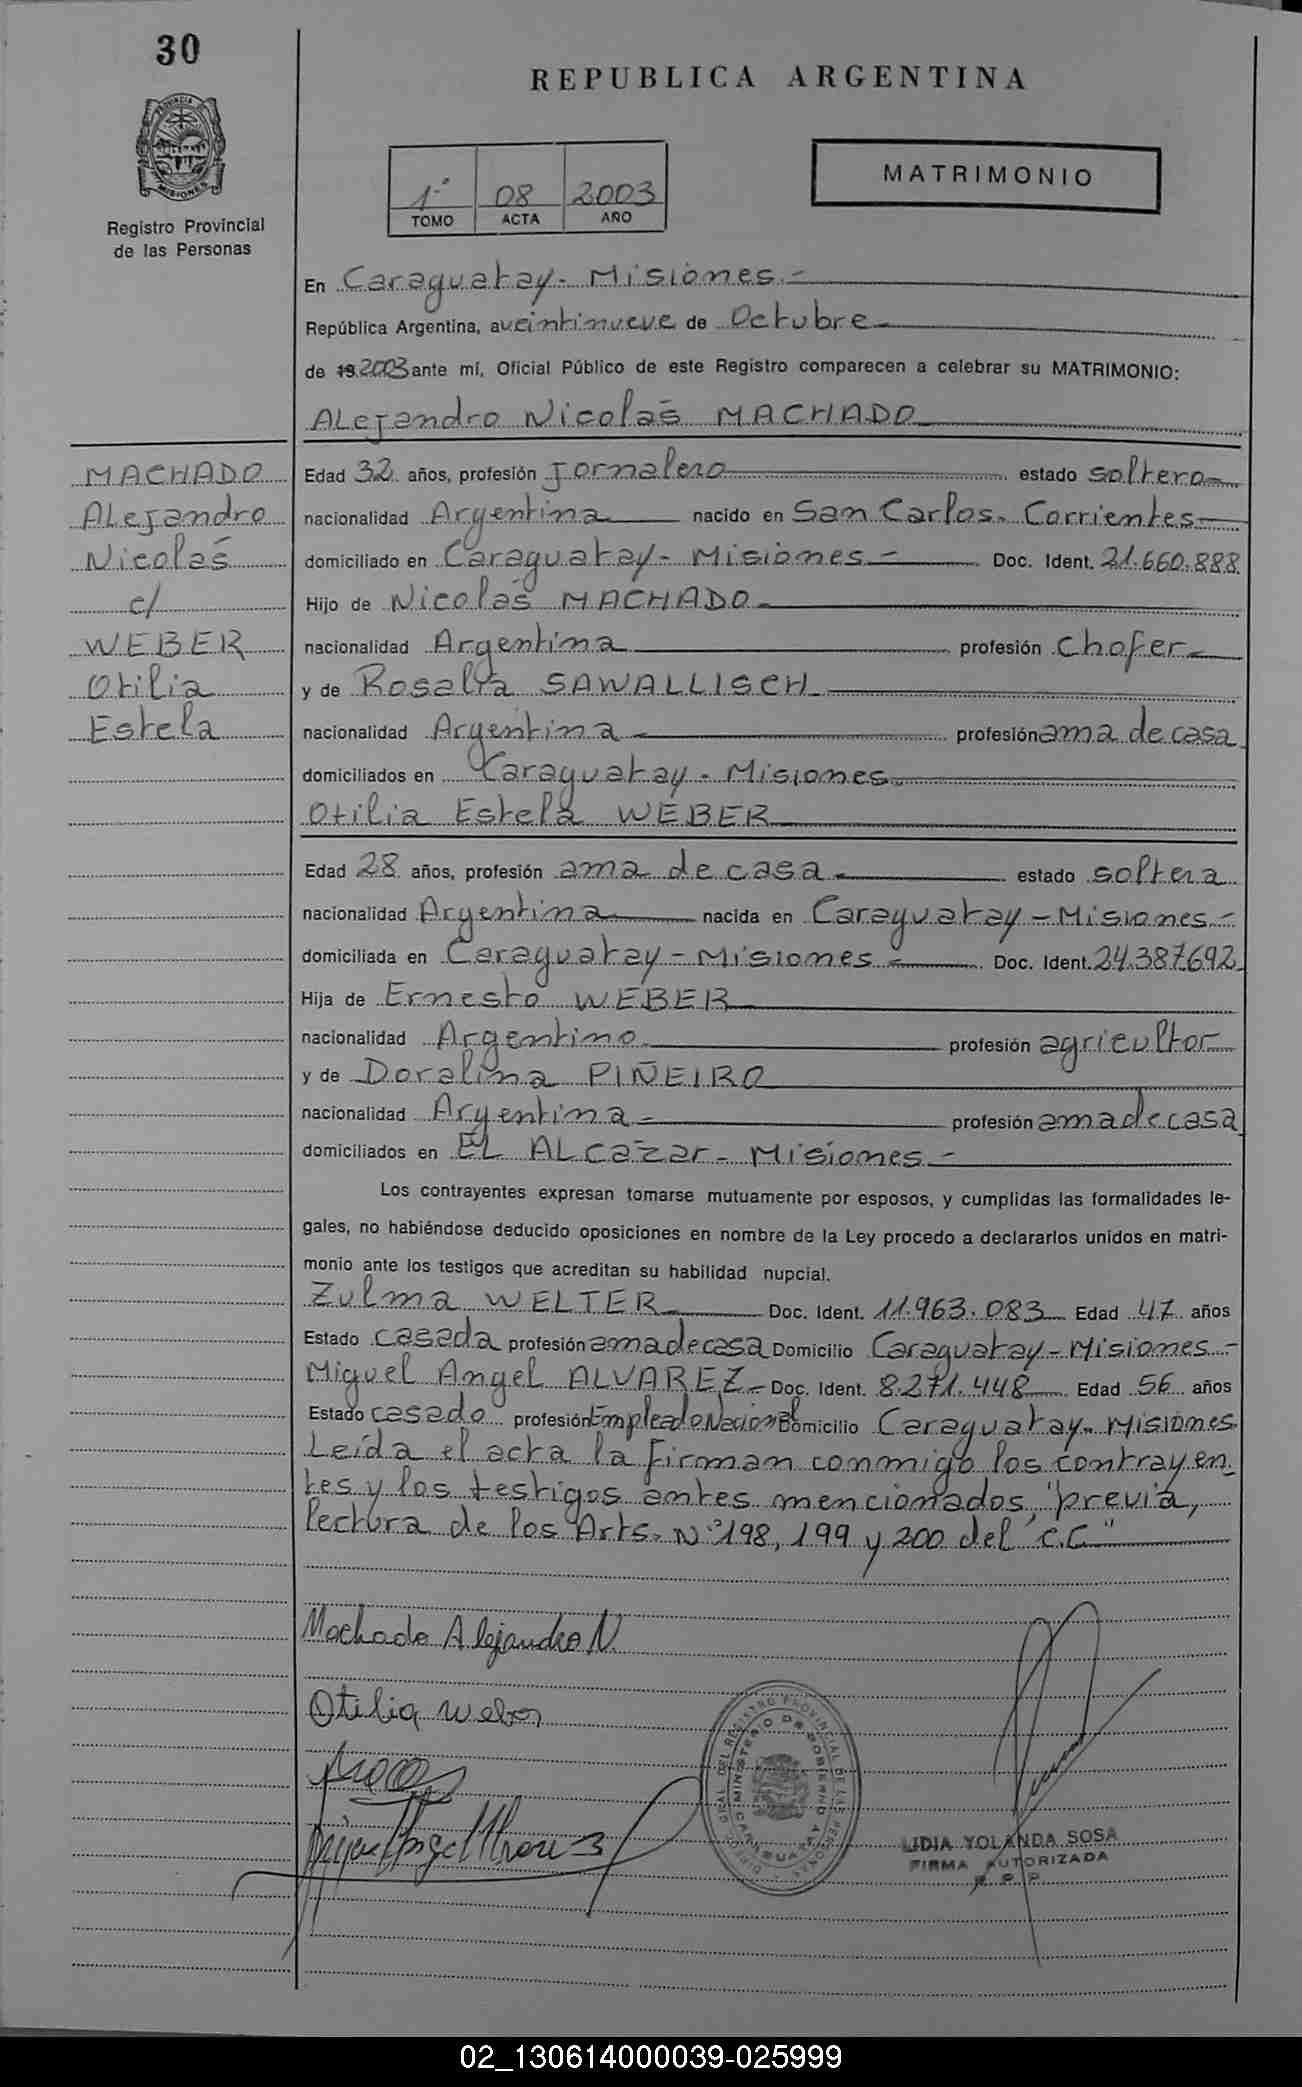 30
REPUBLICA ARGENTINA
MATRIMONIO
1º 08 2003
TOMO ACTA AÑO
PROVINCIA DE MISIONES
Registro Provincial
de las Personas
En Caraguatay - Misiones.-
República Argentina, a veintinueve de Octubre
de 19 2003 ante mí, Oficial Público de este Registro comparecen a celebrar su MATRIMONIO:
Alejandro Nicolás MACHADO
MACHADO
Alejandro
Nicolás
c/
WEBER
Otilia
Estela
Edad 32 años, profesión jornalero estado soltero
nacionalidad Argentina nacido en San Carlos. Corrientes
domiciliado en Caraguatay - Misiones - Doc. Ident. 21.660.888
Hijo de Nicolás MACHADO
nacionalidad Argentina profesión Chofer
y de Rosalía SAWALLISCH
nacionalidad Argentina profesión ama de casa
domiciliados en Caraguatay - Misiones
Otilia Estela WEBER
Edad 28 años, profesión ama de casa estado soltera
nacionalidad Argentina nacida en Caraguatay - Misiones -
domiciliada en Caraguatay - Misiones - Doc. Ident. 24.387692
Hija de Ernesto WEBER
nacionalidad Argentino profesión agricultor
y de Doralina PIÑEIRO
nacionalidad Argentina - profesión ama de casa
domiciliados en EL ALcazar - Misiones -
Los contrayentes expresan tomarse mutuamente por esposos, y cumplidas las formalidades le-
gales, no habiéndose deducido oposiciones en nombre de la Ley procedo a declararlos unidos en matri-
monio ante los testigos que acreditan su habilidad nupcial.
Zulma WELTER Doc. Ident. 11.963.083 Edad 47 años
Estado casada profesión ama de casa Domicilio Caraguatay - Misiones -
Miguel Angel ALVAREZ - Doc. Ident. 8.271.448 Edad 56 años
Estado casado profesión Empleado Nacional Domicilio Caraguatay - Misiones
Leída el acta la firman conmigo los contrayen
tes y los testigos antes mencionados, "previa,
lectura de los Arts. Nº 198, 199 y 200 del "C.C"
Machado Alejandro N.
Otilia Weber
Miguel Angel Alvarez
LIDIA YOLANDA SOSA
FIRMA AUTORIZADA
R P P
02_130614000039-025999